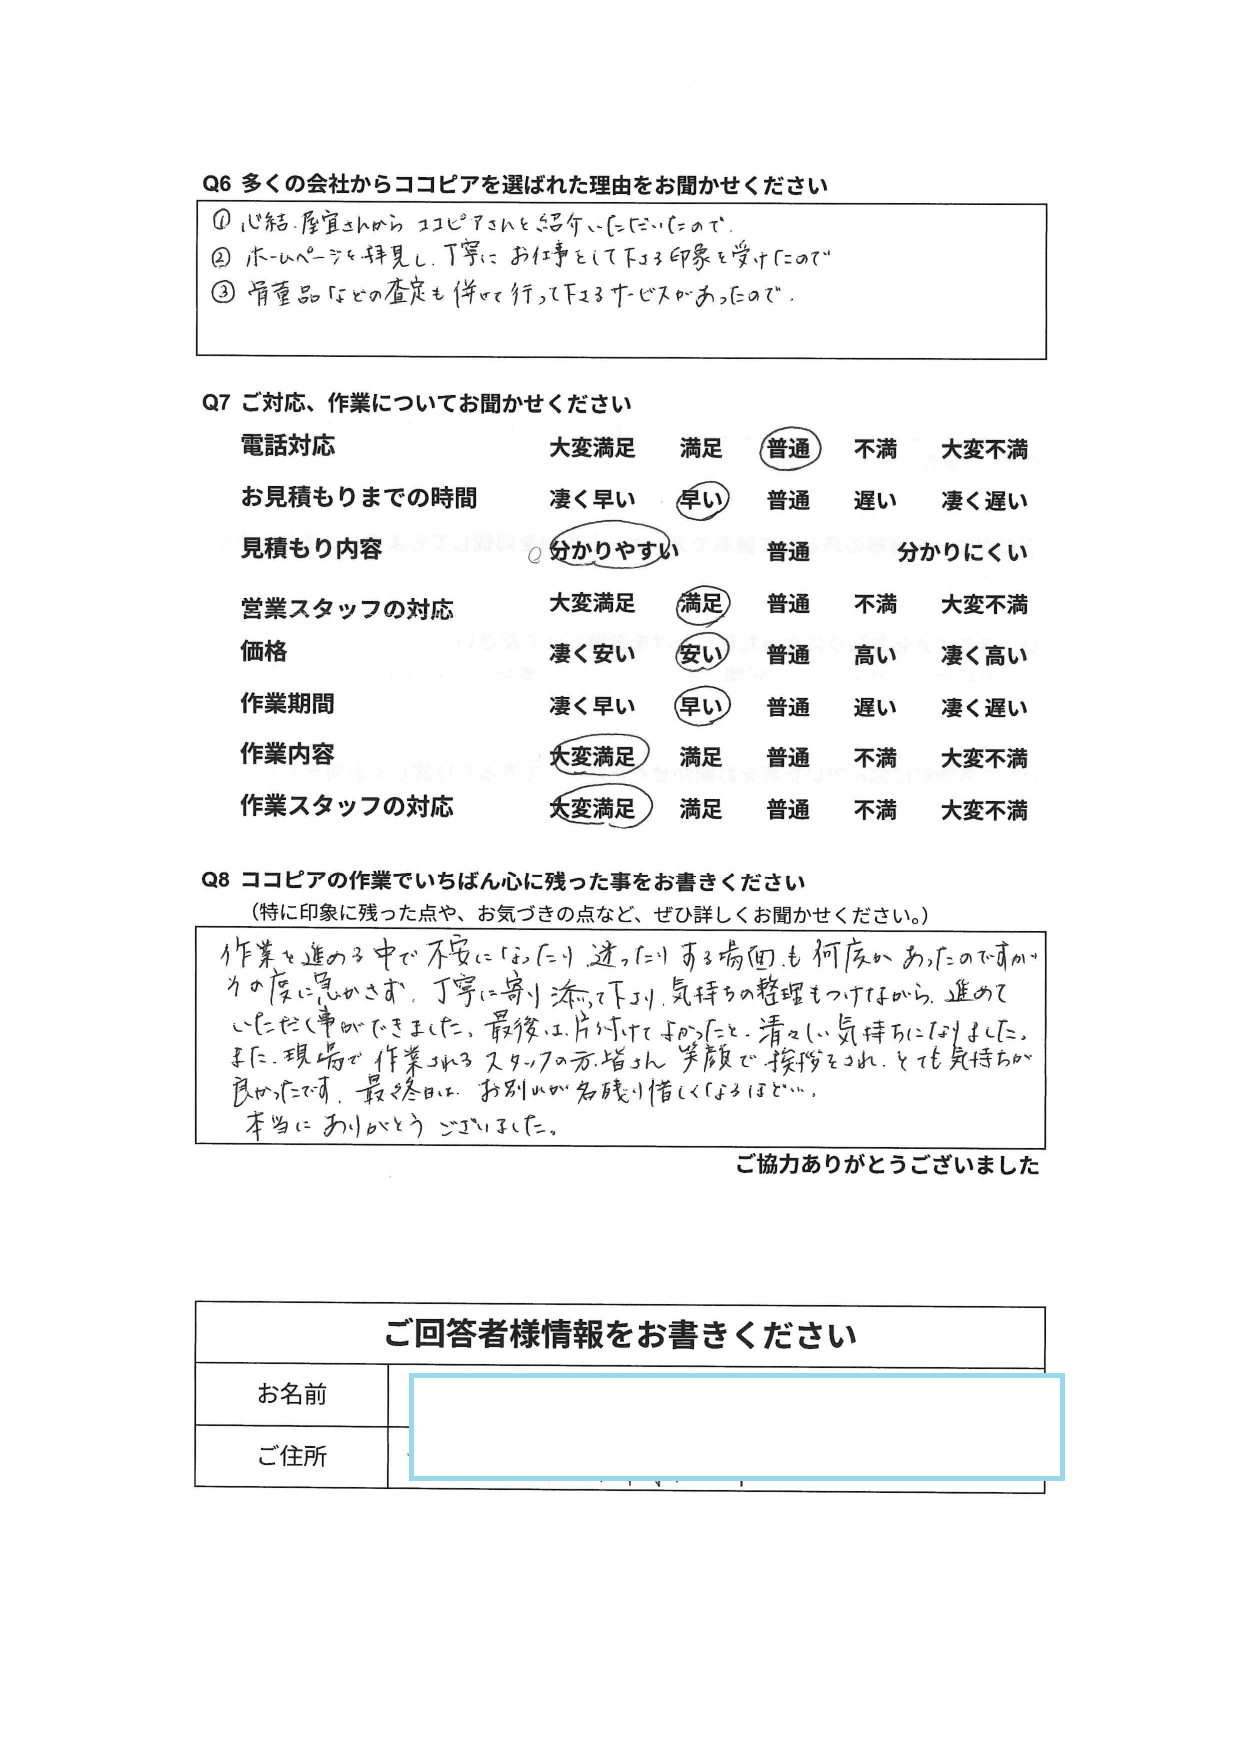 Q6 多くの会社からココピアを選ばれた理由をお聞かせください
① 心結.屋宜さんから ココピアさんを紹介いただいたので.
② ホームページを拝見し.丁寧に お仕事をして下さる印象を受けたので
③ 骨董品などの査定も併せて行って下さるサービスがあったので.
Q7 ご対応、作業についてお聞かせください
電話対応 大変満足 満足 普通 不満 大変不満
お見積もりまでの時間 凄く早い 早い 普通 遅い 凄く遅い
見積もり内容 分かりやすい 普通 分かりにくい
営業スタッフの対応 大変満足 満足 普通 不満 大変不満
価格 凄く安い 安い 普通 高い 凄く高い
作業期間 凄く早い 早い 普通 遅い 凄く遅い
作業内容 大変満足 満足 普通 不満 大変不満
作業スタッフの対応 大変満足 満足 普通 不満 大変不満
Q8 ココピアの作業でいちばん心に残った事をお書きください
（特に印象に残った点や、お気づきの点など、ぜひ詳しくお聞かせください。）
作業を進める中で不安になったり 迷ったりする場面も何度かあったのですが
その度に急かさず.丁寧に寄り添って下さり.気持ちの整理もつけながら.進めて
いただく事ができました。最後は.片付けてよかったと.清々しい気持ちになりました。
また.現場で作業されるスタッフの方.皆さん 笑顔で挨拶をされ.とても気持ちが
良かったです.最終日は.お別れが名残り惜しくなるほど….
本当にありがとうございました。
ご協力ありがとうございました
ご回答者様情報をお書きください
お名前
ご住所